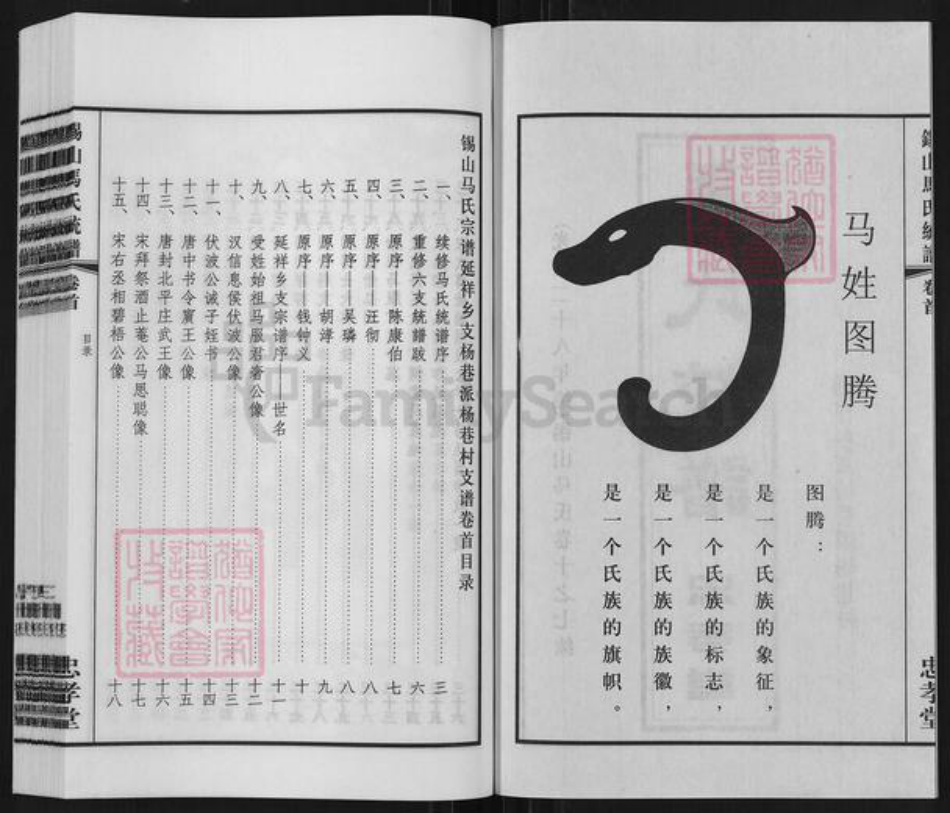 马姓图腾
图腾：
是一个氏族的象征，
是一个氏族的标志，
是一个氏族的族徽，
是一个氏族的旗帜。
忠孝堂
锡山马氏宗谱延祥乡支杨巷派杨巷村支谱卷首目录
一、续修马氏统谱序 三
二、重修六支統譜跋 六
三、原序——陈康伯 七
四、原序——汪彻 八
五、原序——吴璘 八
六、原序——胡涍 九
七、原序——钱钟义 十
八、延祥乡支宗谱序——世名 十一
九、受姓始祖马服君奢公像 十二
十、汉信息侯伏波公像 十三
十一、伏波公诫子姪书 十四
十二、唐中书令賓王公像 十五
十三、唐封北平庄武王像 十六
十四、宋拜祭酒止菴公马思聪像 十七
十五、宋右丞相碧梧公像 十八
錫山馬氏統譜 卷首
目录
忠孝堂
FamilySearch